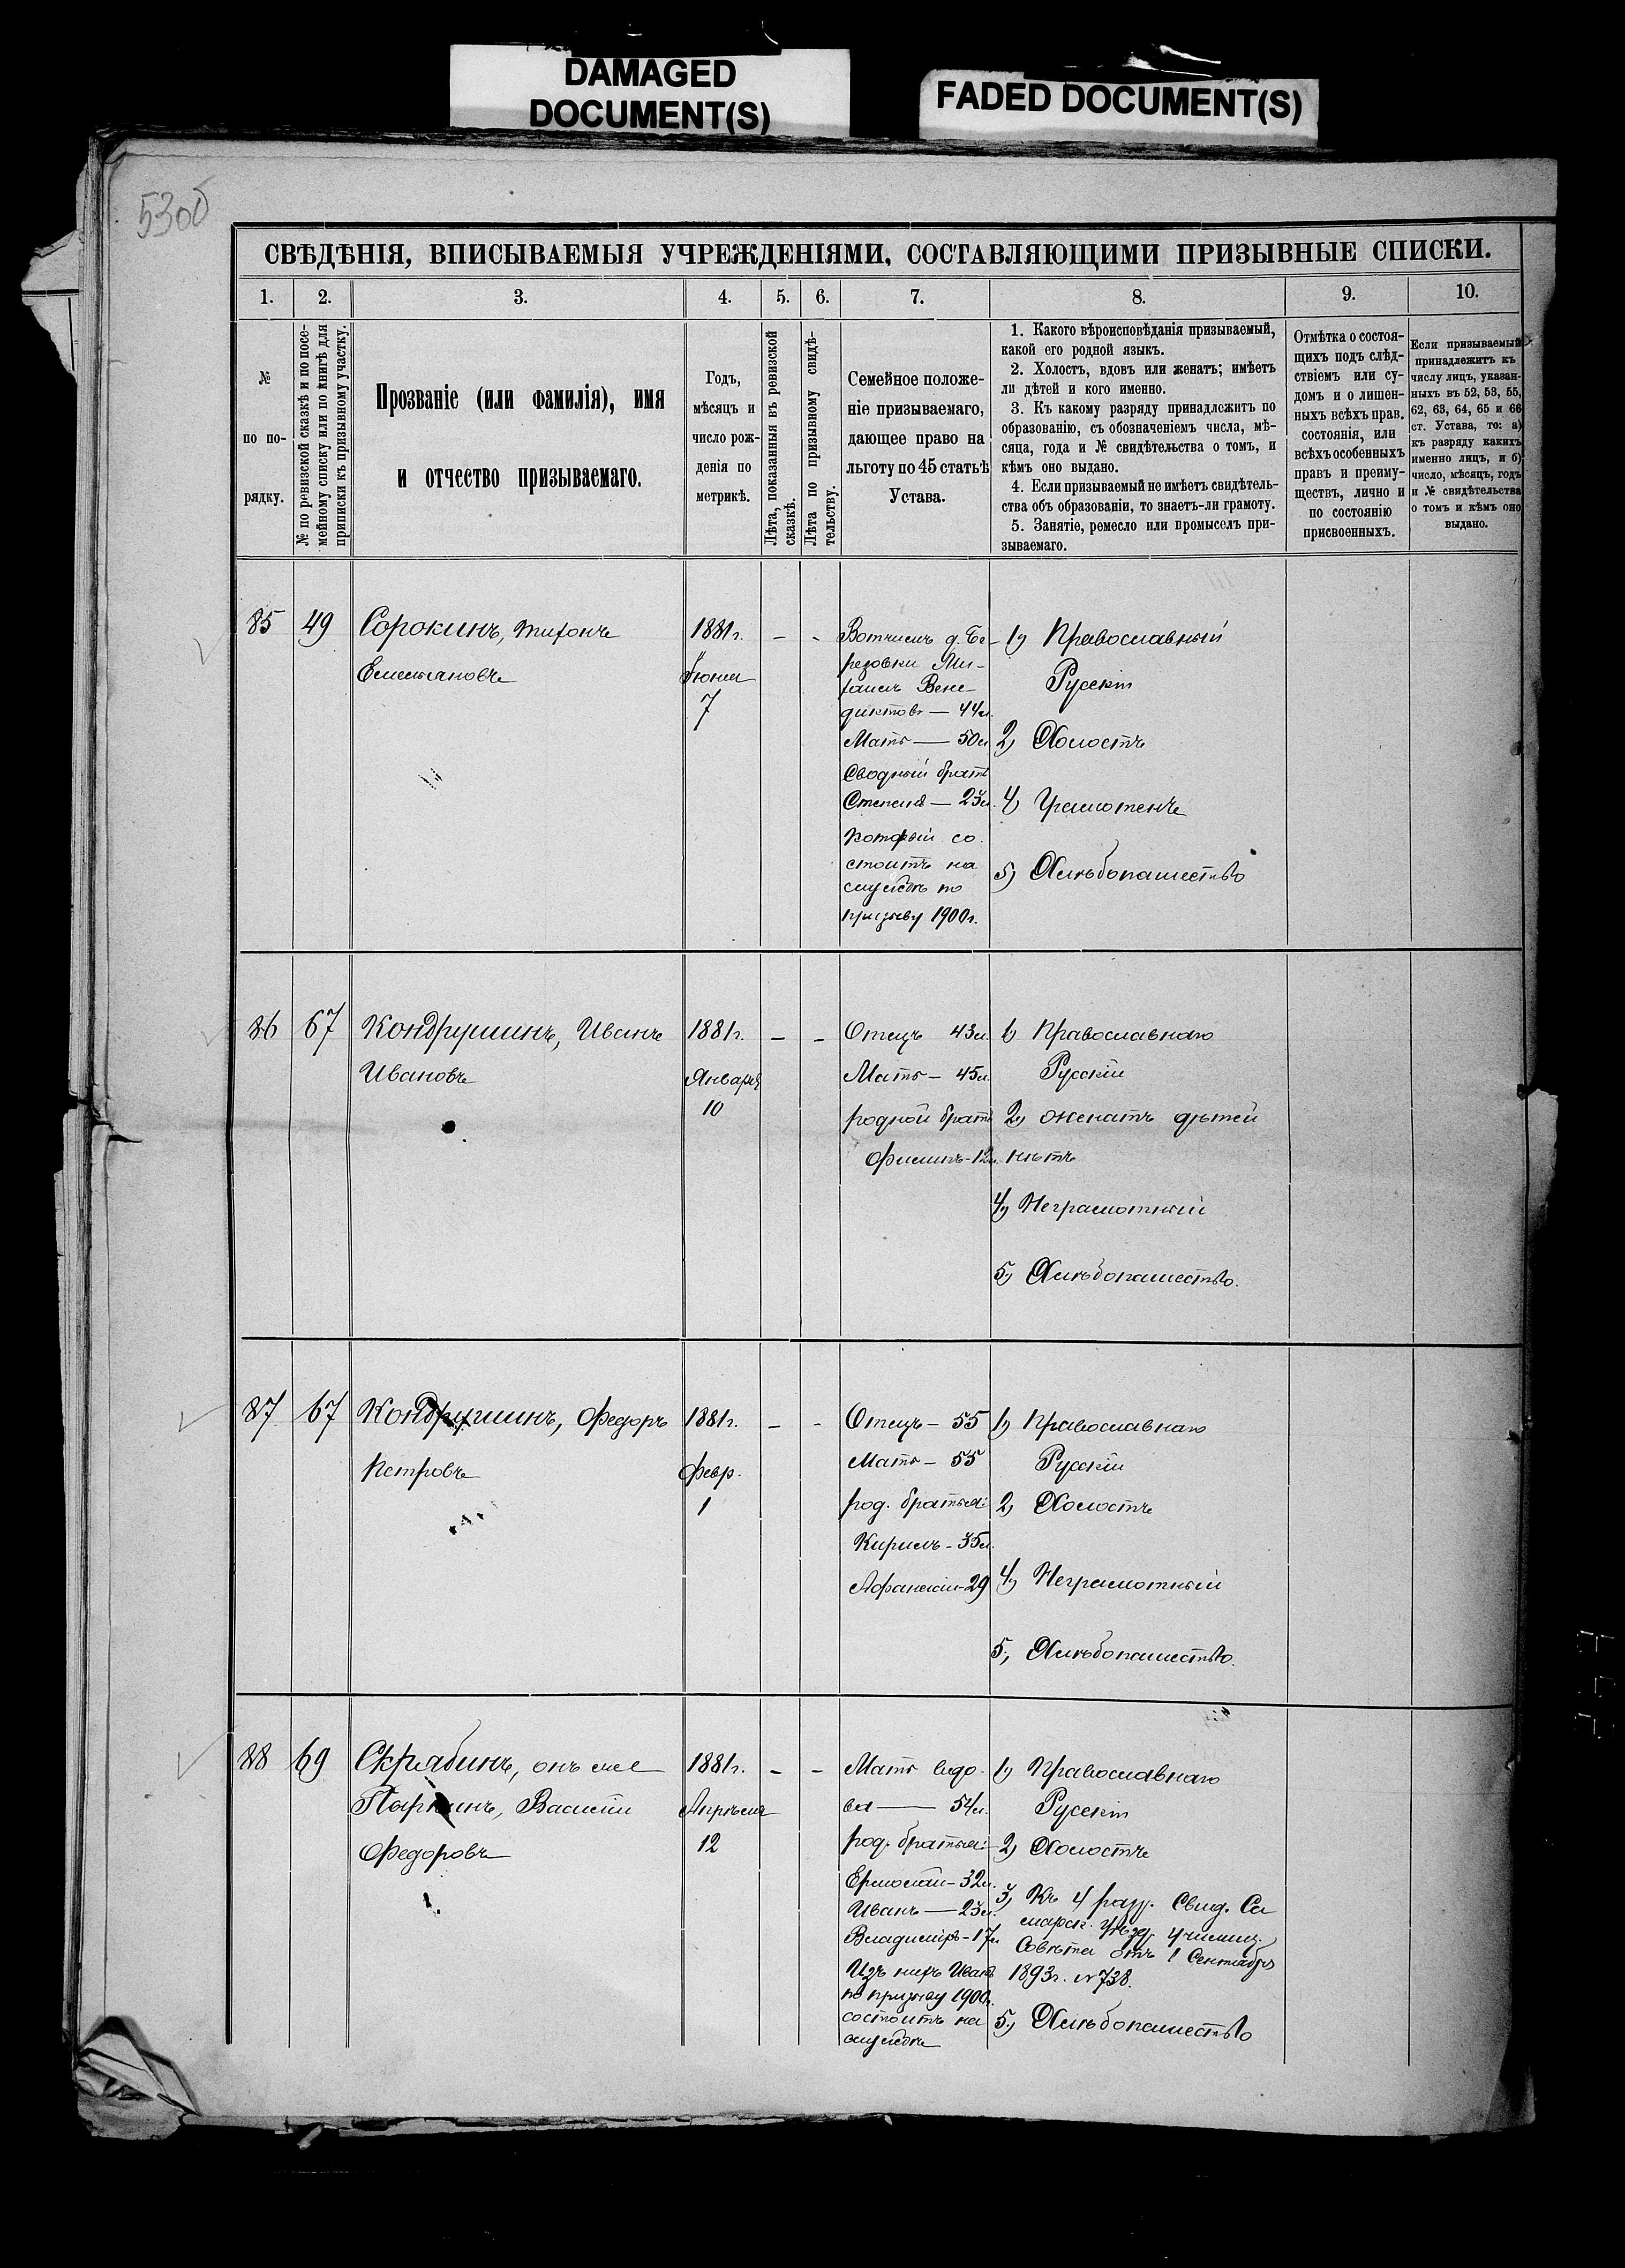 DAMAGED
DOCUMENT(S)
FADED DOCUMENT(S)
53об
СВѢДѢНІЯ, ВПИСЫВАЕМЫЯ УЧРЕЖДЕНІЯМИ, СОСТАВЛЯЮЩИМИ ПРИЗЫВНЫЕ СПИСКИ.
1.
2.
3.
4.
5.
6.
7.
8.
9.
10.
№
по по-
рядку.
№ по ревизской сказкѣ и по посе-
мейному списку или по книгѣ для
приписки къ призывному участку.
Прозваніе (или фамилія), имя
и отчество призываемаго.
Годъ,
мѣсяцъ и
число рож-
денія по
метрикѣ.
Лѣта, показанныя въ ревизской
сказкѣ.
Лѣта по призывному свидѣ-
тельству.
Семейное положе-
ніе призываемаго,
дающее право на
льготу по 45 статьѣ
Устава.
1. Какого вѣроисповѣданія призываемый,
какой его родной языкъ.
2. Холостъ, вдовъ или женатъ; имѣетъ
ли дѣтей и кого именно.
3. Къ какому разряду принадлежитъ по
образованію, съ обозначеніемъ числа, мѣ-
сяца, года и № свидѣтельства о томъ, и
кѣмъ оно выдано.
4. Если призываемый не имѣетъ свидѣтель-
ства объ образованіи, то знаетъ-ли грамоту.
5. Занятіе, ремесло или промыселъ при-
зываемаго.
Отмѣтка о состоя-
щихъ подъ слѣд-
ствіемъ или су-
домъ и о лишен-
ныхъ всѣхъ правъ
состоянія, или
всѣхъ особенныхъ
правъ и преиму-
ществъ, лично и
по состоянію
присвоенныхъ.
Если призываемый
принадлежитъ къ
числу лицъ, указан-
ныхъ въ 52, 53, 55,
62, 63, 64, 65 и 66
ст. Устава, то: а)
къ разряду какихъ
именно лицъ, и б)
число, мѣсяцъ, годъ
и № свидѣтельства
о томъ и кѣмъ оно
выдано.
85
49
Сорокинъ, Тифонъ
Емельяновъ
1881г.
Іюня
7
-
-
Вотчимъ д. Бе-
резовки Ми-
хаилъ Вене-
диктовъ — 44л.
Мать — 50л
Сводный братъ
Степанъ — 23л.
который со-
стоитъ на
службѣ по
призыву 1900г.
1) Православный
Русскій
2) Холостъ
4) Грамотенъ
5) Хлѣбопашество
86
67
Кондрушинъ, Иванъ
Ивановъ
1881г.
Января
10
-
-
Отецъ 43л.
Мать - 45л.
родной братъ
Филипъ - 12л.
1) Православнаго
Русскій
2) женатъ дѣтей
нѣтъ
4) Неграмотный
5) Хлѣбопашество.
87
67
Кондрушинъ, Федоръ
Петровъ
1881г.
февр.
1
-
-
Отецъ - 55
Мать - 55
род. братья:
Кирилъ - 35л.
Афанасій - 29
1) Православнаго
Русскій
2) Холостъ
4) Неграмотный
5, Хлѣбопашество.
88
69
Скрябинъ, онъ же
Паркинъ, Василій
Федоровъ
1881г.
Апрѣля
12
-
-
Мать вдо-
ва — 54л.
род. братья:
Ермолай - 32л.
Иванъ — 23л.
Владиміръ - 17л
Изъ нихъ Иванъ
по призыву 1900г.
состоитъ на
службѣ
1) Православнаго
Русскій
2) Холостъ
3) Къ 4 разр. Свид. Са
марск. Уѣзд. училищ.
Совѣта отъ 1 Сентября
1893г. № 738.
5) Хлѣбопашество